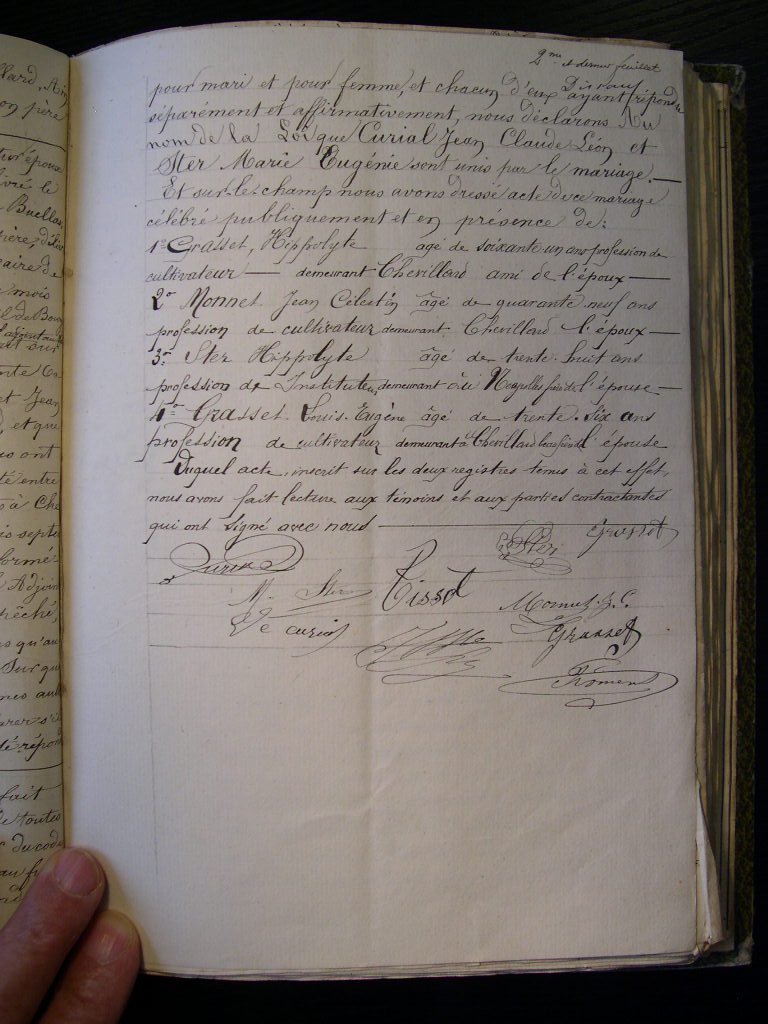 2me et dernier feuillet
pour mari et pour femme, et chacun d'eux ayant répondu
séparément et affirmativement, nous déclarons Au
nom de la Loi que Curial Jean Claude Léon et
Ster Marie Eugénie sont unis par le mariage.
Et sur-le-champ nous avons dressé acte de ce mariage
célébré publiquement et en présence de:
1° Grasset, Hippolyte âgé de soixante un ans profession de
cultivateur — demeurant Chevillard ami de l'époux —
2° Monnet Jean Célestin âgé de quarante neuf ans
profession de cultivateur demeurant Chevillard l'époux —
3° Ster Hippolyte âgé de trente-huit ans
profession de Instituteur demeurant à Neyrolles frère de l'épouse —
4° Grasset Louis-Eugène âgé de trente-six ans
profession de cultivateur demeurant à Chevillard beau frère de l'épouse
Duquel acte, inscrit sur les deux registres tenus à cet effet,
nous avons fait lecture aux témoins et aux parties contractantes
qui ont signé avec nous —
Grasset
Ster
M. Ster
Tissot
Monnet J. C.
Grasset
Froment
llard, Ain
on père
sur épouse
ivré le
Buellas
mois
et Jean
et que
ont
té entre
à Che
formé
Adjoin
pêché,
qu'au
Sur qu
fait
de toutes
du code